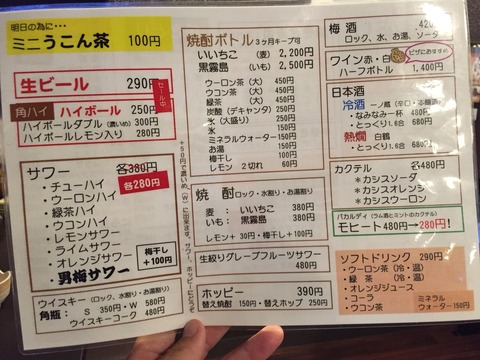 明日の為に…
ミニうこん茶 100円
生ビール 290円
セール中
角ハイ ハイボール 250円
ハイボールダブル(濃いめ) 300円
ハイボールレモン入り 280円
サワー 各380円
各280円
・チューハイ
・ウーロンハイ
・緑茶ハイ
・ウコンハイ
・レモンサワー
・ライムサワー
・オレンジサワー
・男梅サワー
梅干し
+100円
ウイスキー(ロック、水割り、お湯割り)
角瓶: S 350円・W 580円
ウイスキーコーク 480円
+50円で濃いめ(W)に出来ます。サワー、ホッピーにどうぞ
焼酎ボトル 3ヶ月キープ可
いいちこ(麦) 2,200円
黒霧島(いも) 2,500円
ウーロン茶(大) 450円
ウコン茶(大) 450円
緑茶(大) 450円
炭酸(デキャンタ) 450円
水(大盛り) 150円
氷 150円
ミネラルウォーター 150円
お湯 150円
梅干し 100円
レモン 2切れ 60円
焼 酎(ロック・水割り・お湯割り)
麦: いいちこ 380円
芋: 黒霧島 380円
レモン+30円・梅干し+100円
生絞りグレープフルーツサワー
480円
ホッピー 390円
替え焼酎 150円・替えホップ 250円
梅酒 420円
ロック、水、お湯、ソーダ
ワイン赤・白
ピザにおすすめ
ハーフボトル 1,400円
日本酒
冷酒 一ノ蔵(辛口・本醸造)
・なみなみ一杯 480円
・とっくり1.6合 680円
熱燗 白鶴
・とっくり1.6合 680円
カクテル 各480円
*カシスソーダ
*カシスオレンジ
*カシスウーロン
バカルディ(ラム酒とミントのカクテル)
モヒート480円→280円!
ソフトドリンク 290円
・ウーロン茶(冷・温)
・緑 茶(冷・温)
・オレンジジュース
・コーラ
・ウコン茶
ミネラル
ウォーター150円